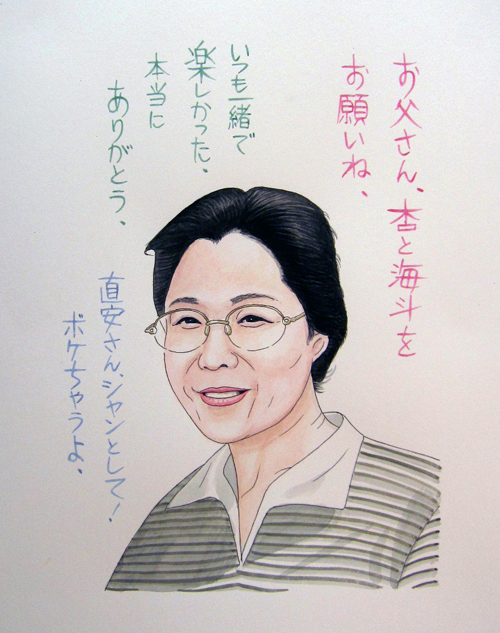 お父さん、杏と海斗を
お願いね、
いつも一緒で
楽しかった、
本当に
ありがとう、
直安さん、シャンとして!
ボケちゃうよ、